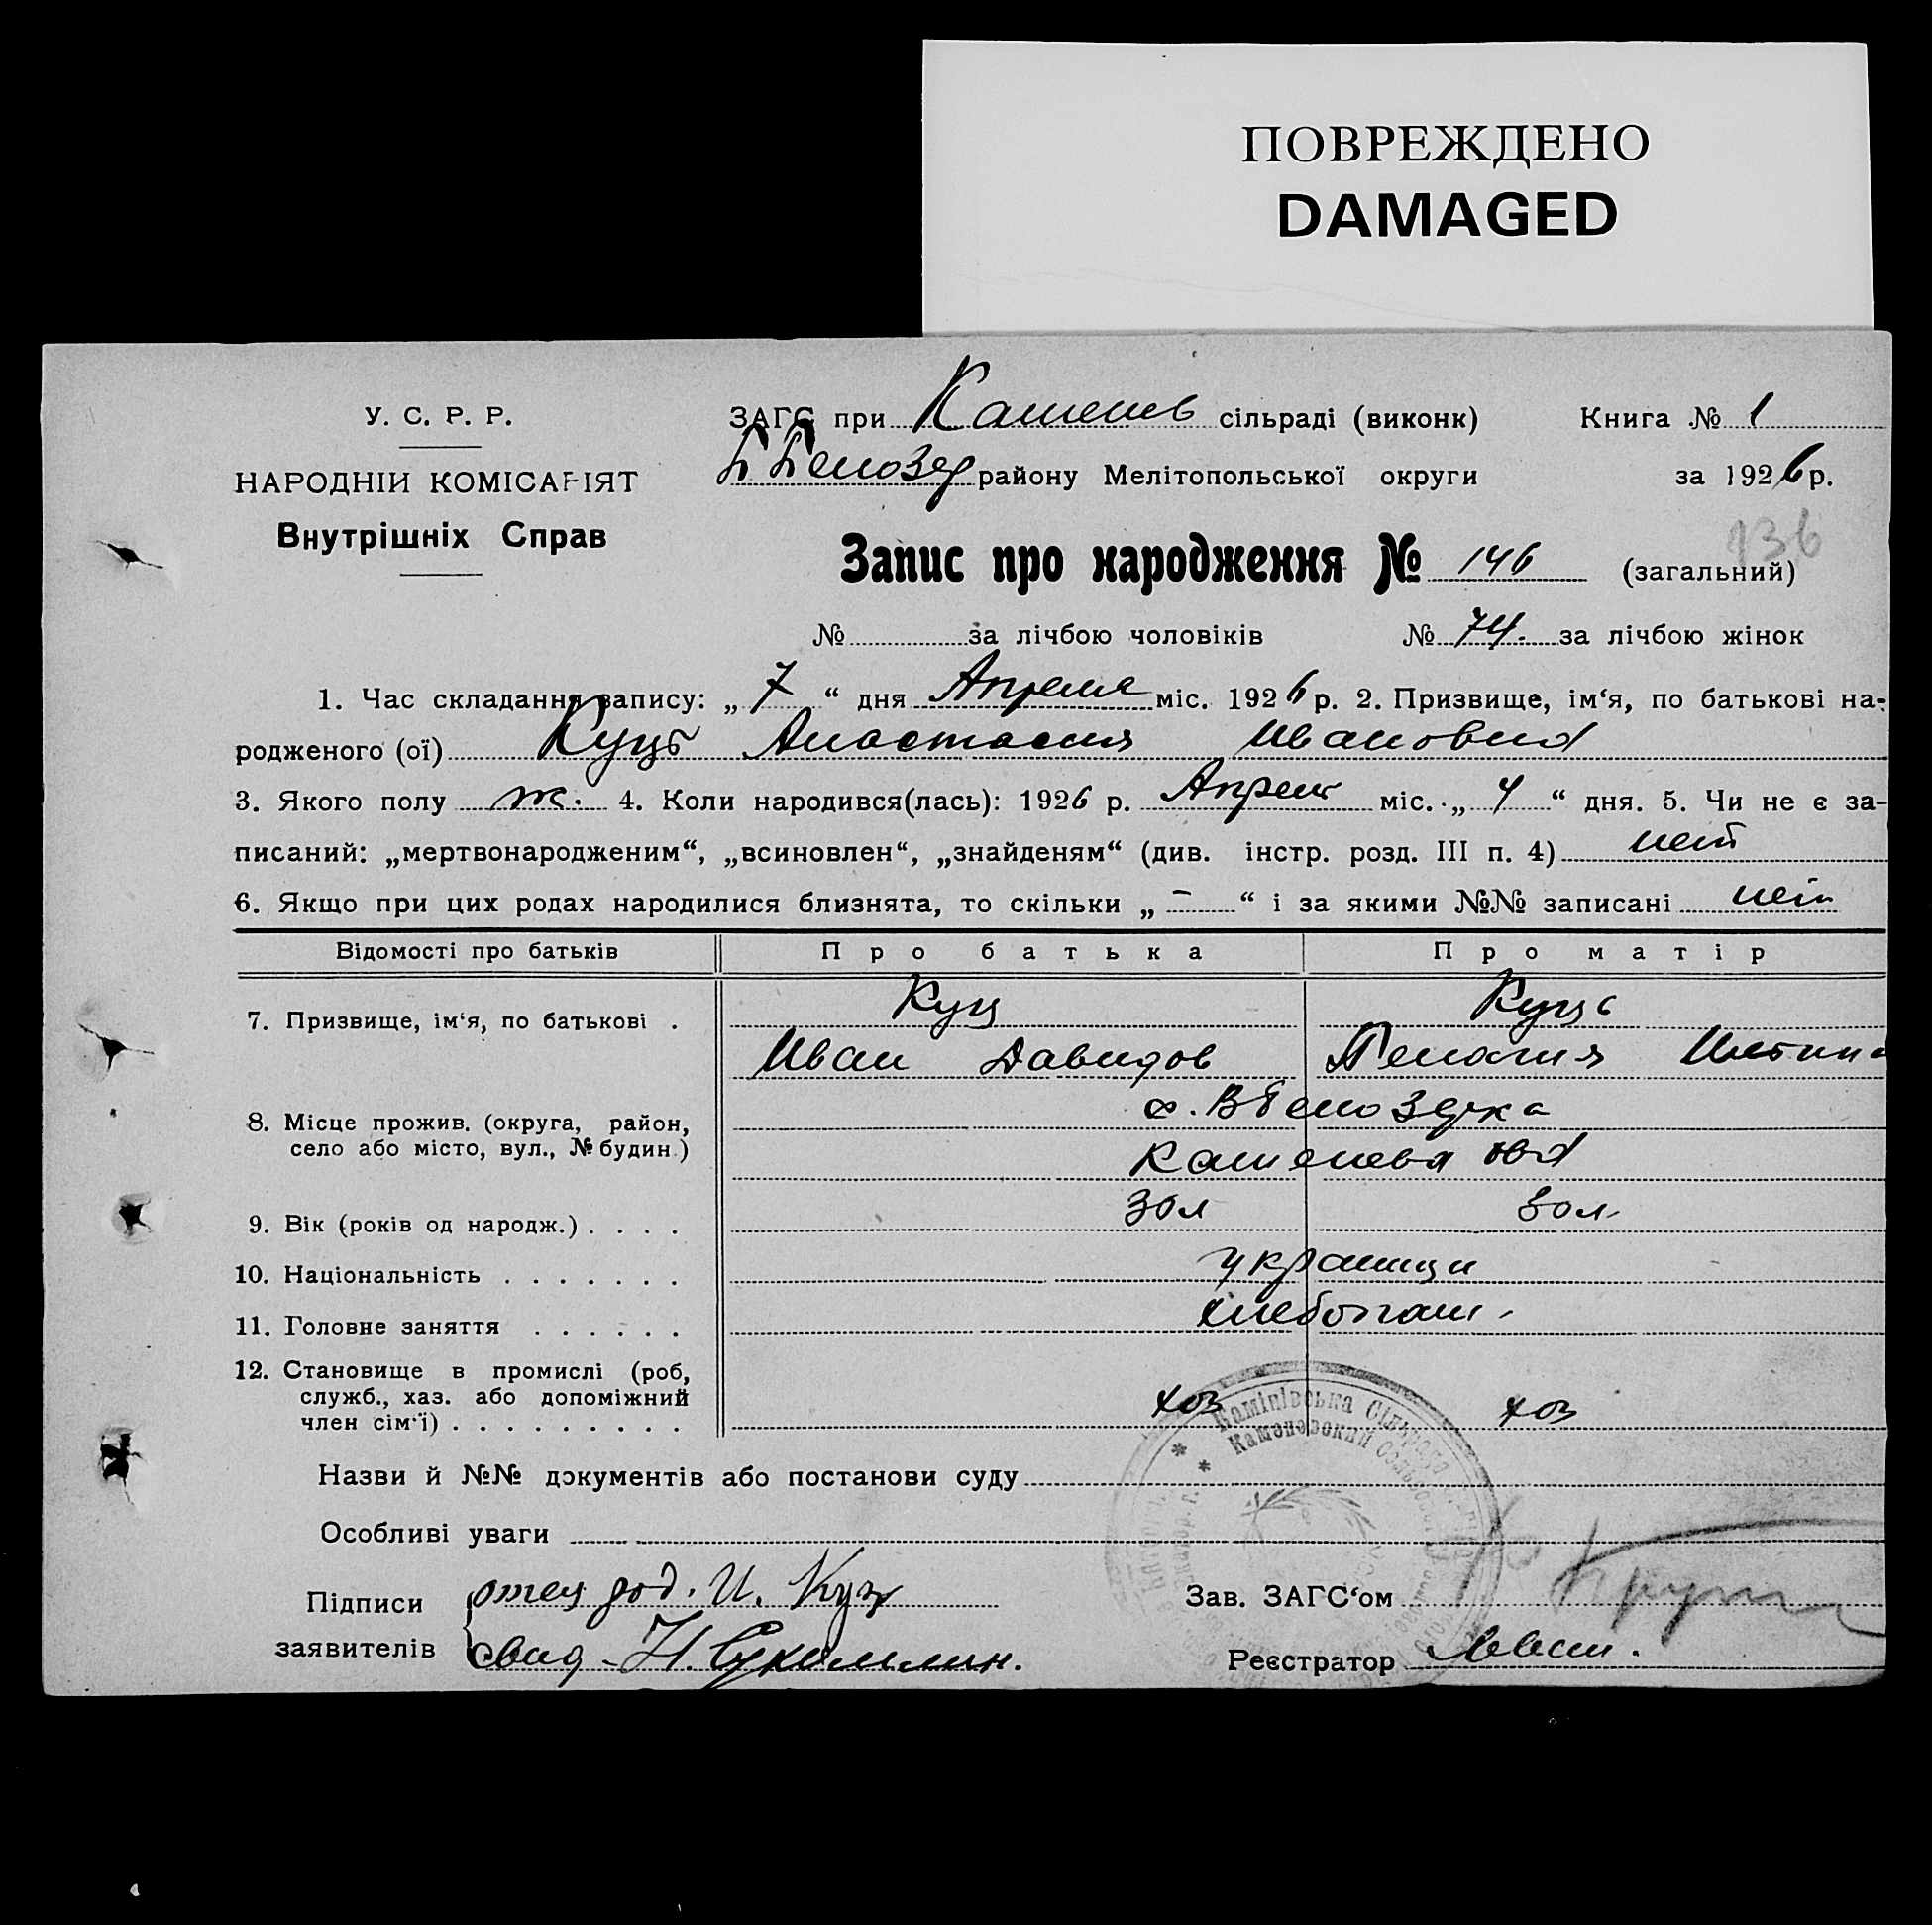 ПОВРЕЖДЕНО
DAMAGED
У. С. Р. Р.
НАРОДНІЙ КОМІСАРІЯТ
Внутрішніх Справ
ЗАГС при Каменев сільраді (виконк) Книга № 1
Б Белозер району Мелітопольської округи за 1926 р.
136
Запис про народження № 146 (загальний)
№ за лічбою чоловіків № 74. за лічбою жінок
1. Час складання запису: „ 7 “ дня Апреля міс. 1926 р. 2. Призвище, ім‘я, по батькові на-
родженого (ої) Куць Анастасия Ивановна
3. Якого полу ж. 4. Коли народився(лась): 1926 р. Апреля міс. „ 4 “ дня. 5. Чи не є за-
писаний: „мертвонародженим“, „всиновлен“, „знайденям“ (див. інстр. розд. III п. 4) нет
6. Якщо при цих родах народилися близнята, то скільки „ – “ і за якими №№ записані нет
Відомості про батьків Про батька Про матір
7. Призвище, ім‘я, по батькові . Куц Куць
Иван Давидов Пелагия
8. Місце прожив. (округа, район, с. ВБелозерка
село або місто, вул., № будин.) Каменева
9. Вік (років од народж.) . . . . 30 л 30 л.
10. Національність . . . . . . . украинци
11. Головне заняття . . . . . . хлебопаш.
12. Становище в промислі (роб,
служб., хаз. або допоміжний
член сім‘ї) . . . . . . . . . хоз хоз
Камінівська Сільрада
Каменовский
Назви й №№ документів або постанови суду
Особливі уваги
Підписи отец И. Куц Зав. ЗАГС‘ом
заявителів свид. Н. Сухомлин. Реєстратор